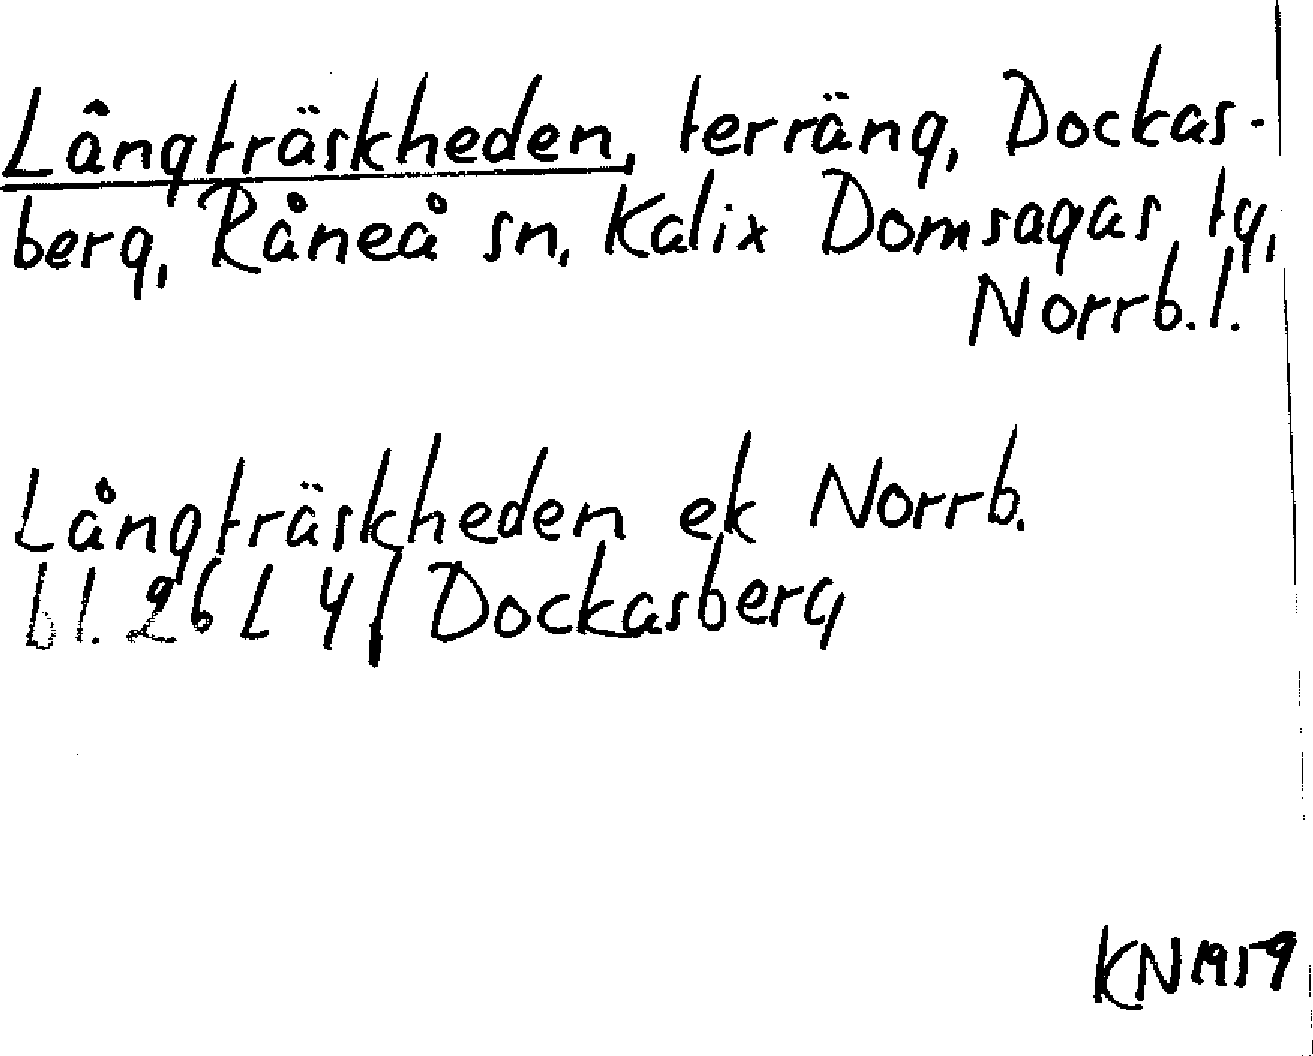 Långträskheden, terräng, Dockas-
berg, Råneå sn, Kalix Domsagas tg,
Norrb. l.
Långträskheden ek Norrb.
bl. 26 L 4f Dockasberg
KN 1959